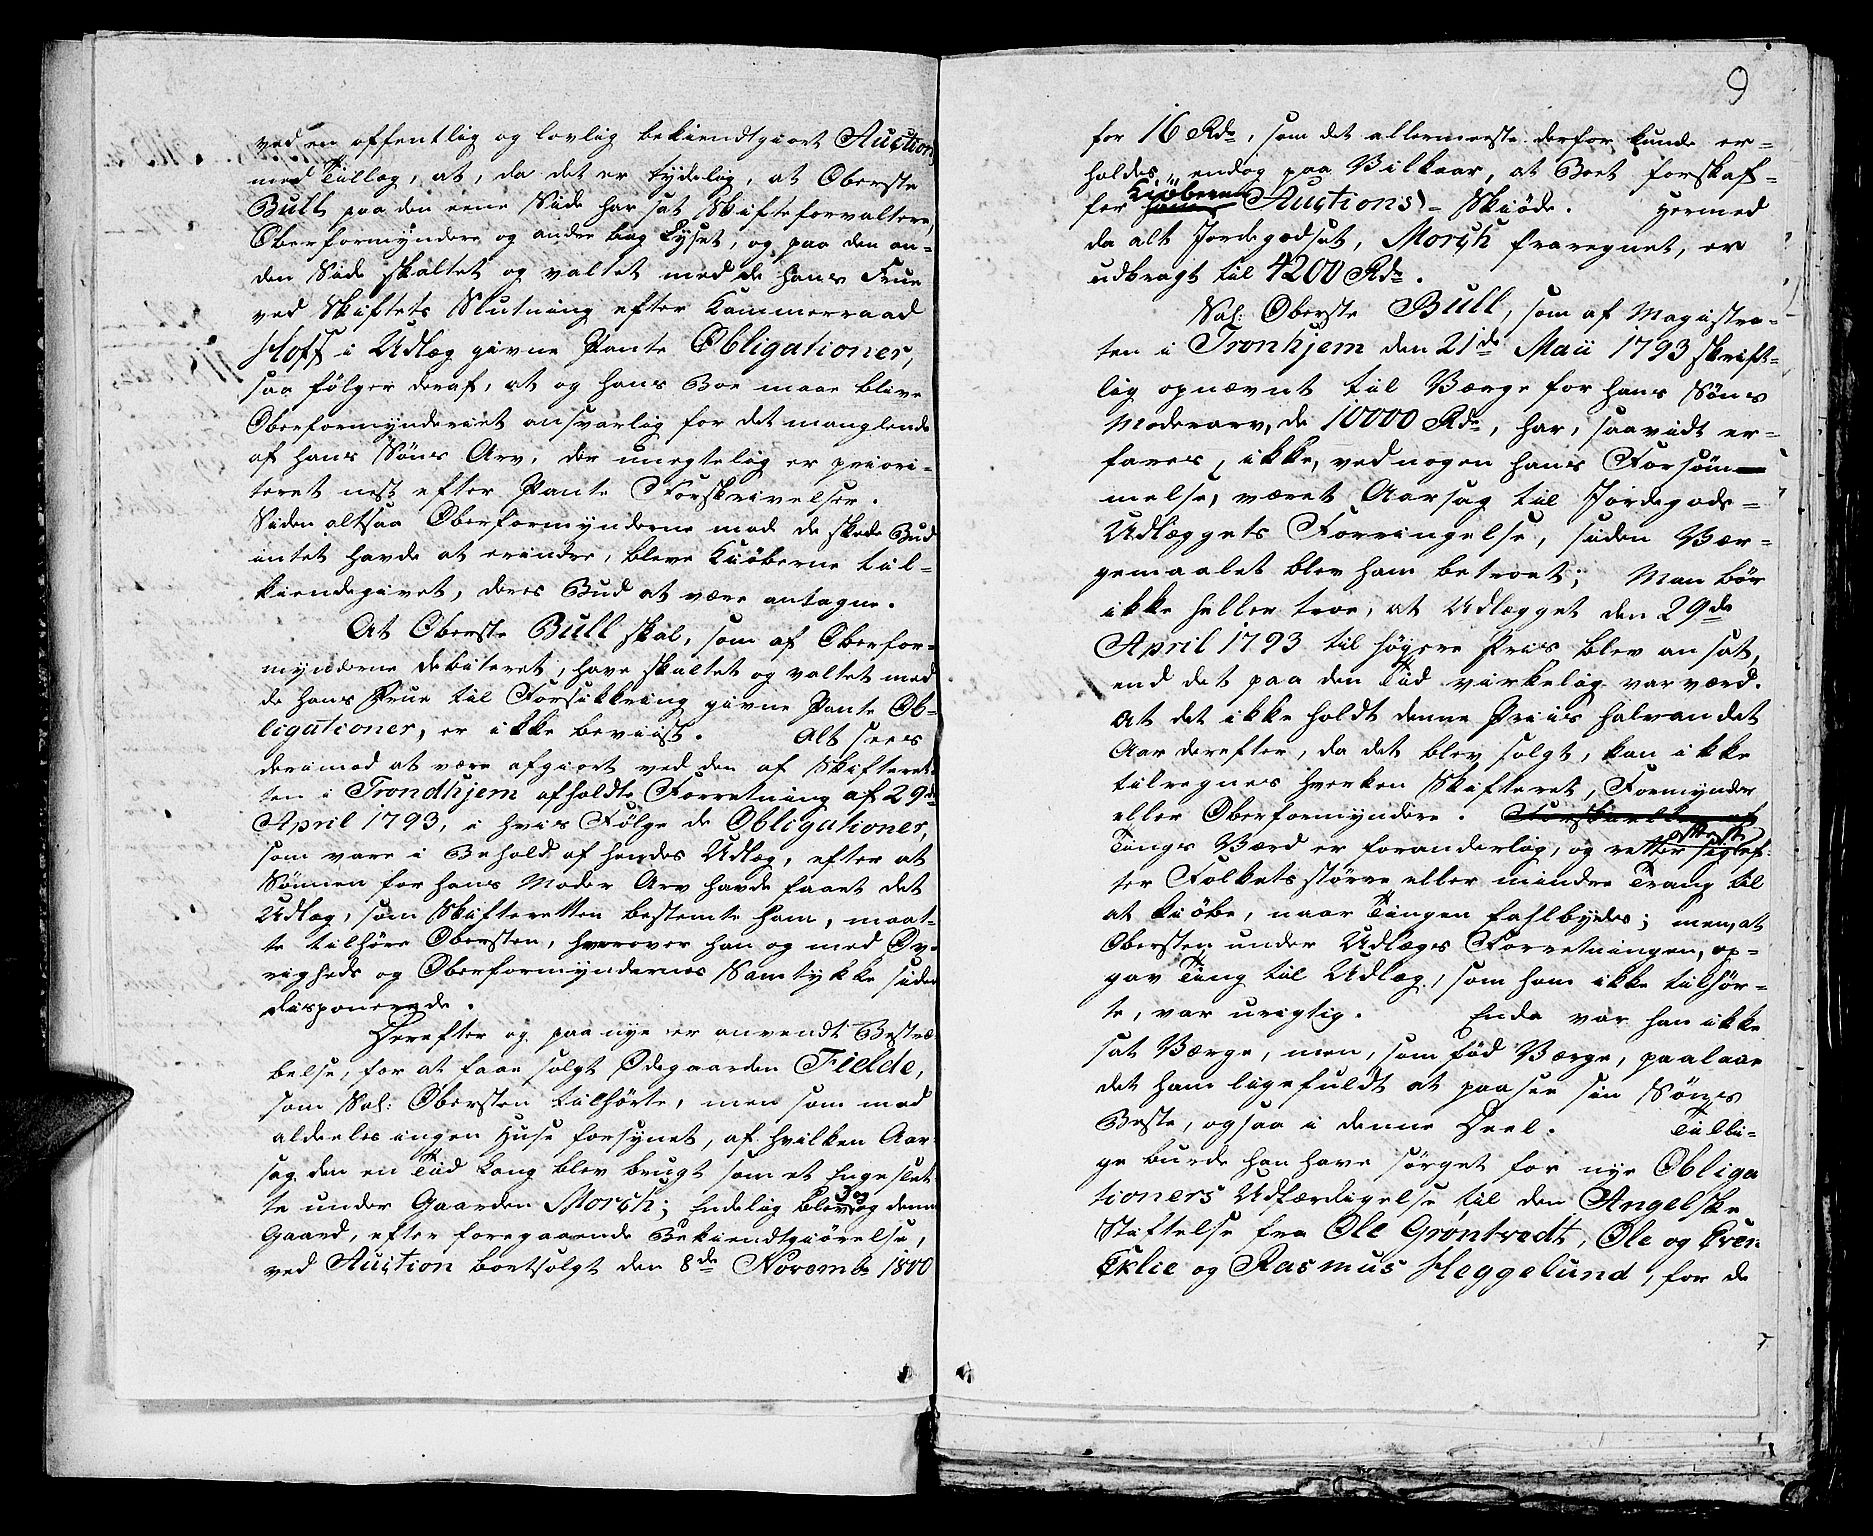 ved en offentlig og lovlig bekiendtgiort Auction,
med Tillæg, at, da det er tydelig, at Oberste
Bull paa den eene Side har sat Skifteforvaltere,
Oberformyndere og andre bag Lyset, og paa den an-
den Side skaltet og valtet med de hans Frue
ved Skiftets Slutning efter Kammerraad
Hoff i Udlæg givne Pante Obligationer,
saa følger deraf, at og hans Boe maae blive
Oberformynderiet ansvarlig for det manglende
af hans Søns Arv, der unegtelig er priori-
teret nest efter Pante Forskrivelser.
Siden altsaa Oberformynderne mod de skede Bud
intet havde at erindre, bleve Kiøberne til-
kiendegivet, deres Bud at være antagne.
At Oberste Bull skal, som af Oberfor-
mynderne debiteret, have skaltet og valtet med
de hans Frue til Forsikkring givne Pante Ob-
ligationer, er ikke beviist. Alt sees
derimod at være afgiort ved den af Skifteret-
ten i Trondhjem afholdte Forretning af 29de
April 1793, i hvis Følge de Obligationer,
som vare i Behold af hendes Udlæg, efter at
Sønnen for hans Moder Arv havde faaet det
Udlæg, som Skifteretten bestemte ham, maat-
te tilhøre Obersten, hvorover han og med Øv-
righeds og Oberformyndernes Samtykke siden
disponerede.
Derefter og paa nye er anvendt Bestræ-
belse, for at faae solgt Ødegaarden Fielde,
som Sal: Obersten tilhørte, men som med
aldeeles ingen Huse forsynet, af hvilken Aar-
sag den en Tiid lang blev brugt som et Engeslet-
te under Gaarden Morsk; Endelig blev og denne
Gaard, efter foregaaende Bekiendtgiørelse,
ved Auction bortsolgt den 8de Novemb: 1800
9
for 16 Rdr, som det allermeeste derfor kunde er-
holdes, endog paa Vilkaar, at Boet forskaf-
fer Kiøberen Auctions-Skiøde. Hermed
da alt Jordegodset, Morsk fraregnet, er
udbragt til 4200 Rdr.
Sal: Oberste Bull, som af Magistra-
ten i Tronhjem den 21de Maii 1793 skrift-
lig opnævnt til Værge for hans Søns
Moderarv, de 10000 Rdr, har, saavidt er-
fares, ikke, ved nogen hans Forsøm-
melse, været Aarsag til Jordegods-
Udlæggets Forringelse, siden Vær-
gemaalet blev ham betroet; Man bør
ikke heller troe, at Udlægget den 29de
April 1793 til høyere Pris blev ansat,
end det paa den Tiid virkelig var værd.
At det ikke holdt denne Priis halvandet
Aar derefter, da det blev solgt, kan ikke
tilregnes hverken Skifteret, Formynder
eller Oberformyndere.
Tinges Værd er foranderlig, og retter sig ofteste ef-
ter Folkets større eller mindre Trang til
at kiøbe, naar Tingen fahlbydes; men, at
Obersten under Udlægs Forretningen, op-
gav Ting til Udlæg, som ham ikke tilhør-
te, var urigtig. Enda var han ikke
sat Værge, men, som fød Værge, paalaae
det ham ligefuldt at paasee sin Søns
Beste, ogsaa i denne Deel. Tilli-
ge burde han have sørget for nye Obliga
tioners Udfærdigelse til den Angelske
Stiftelse fra Ole Grøntvedt, Ole og Even
Eklie og Rasmus Heggelund, for de